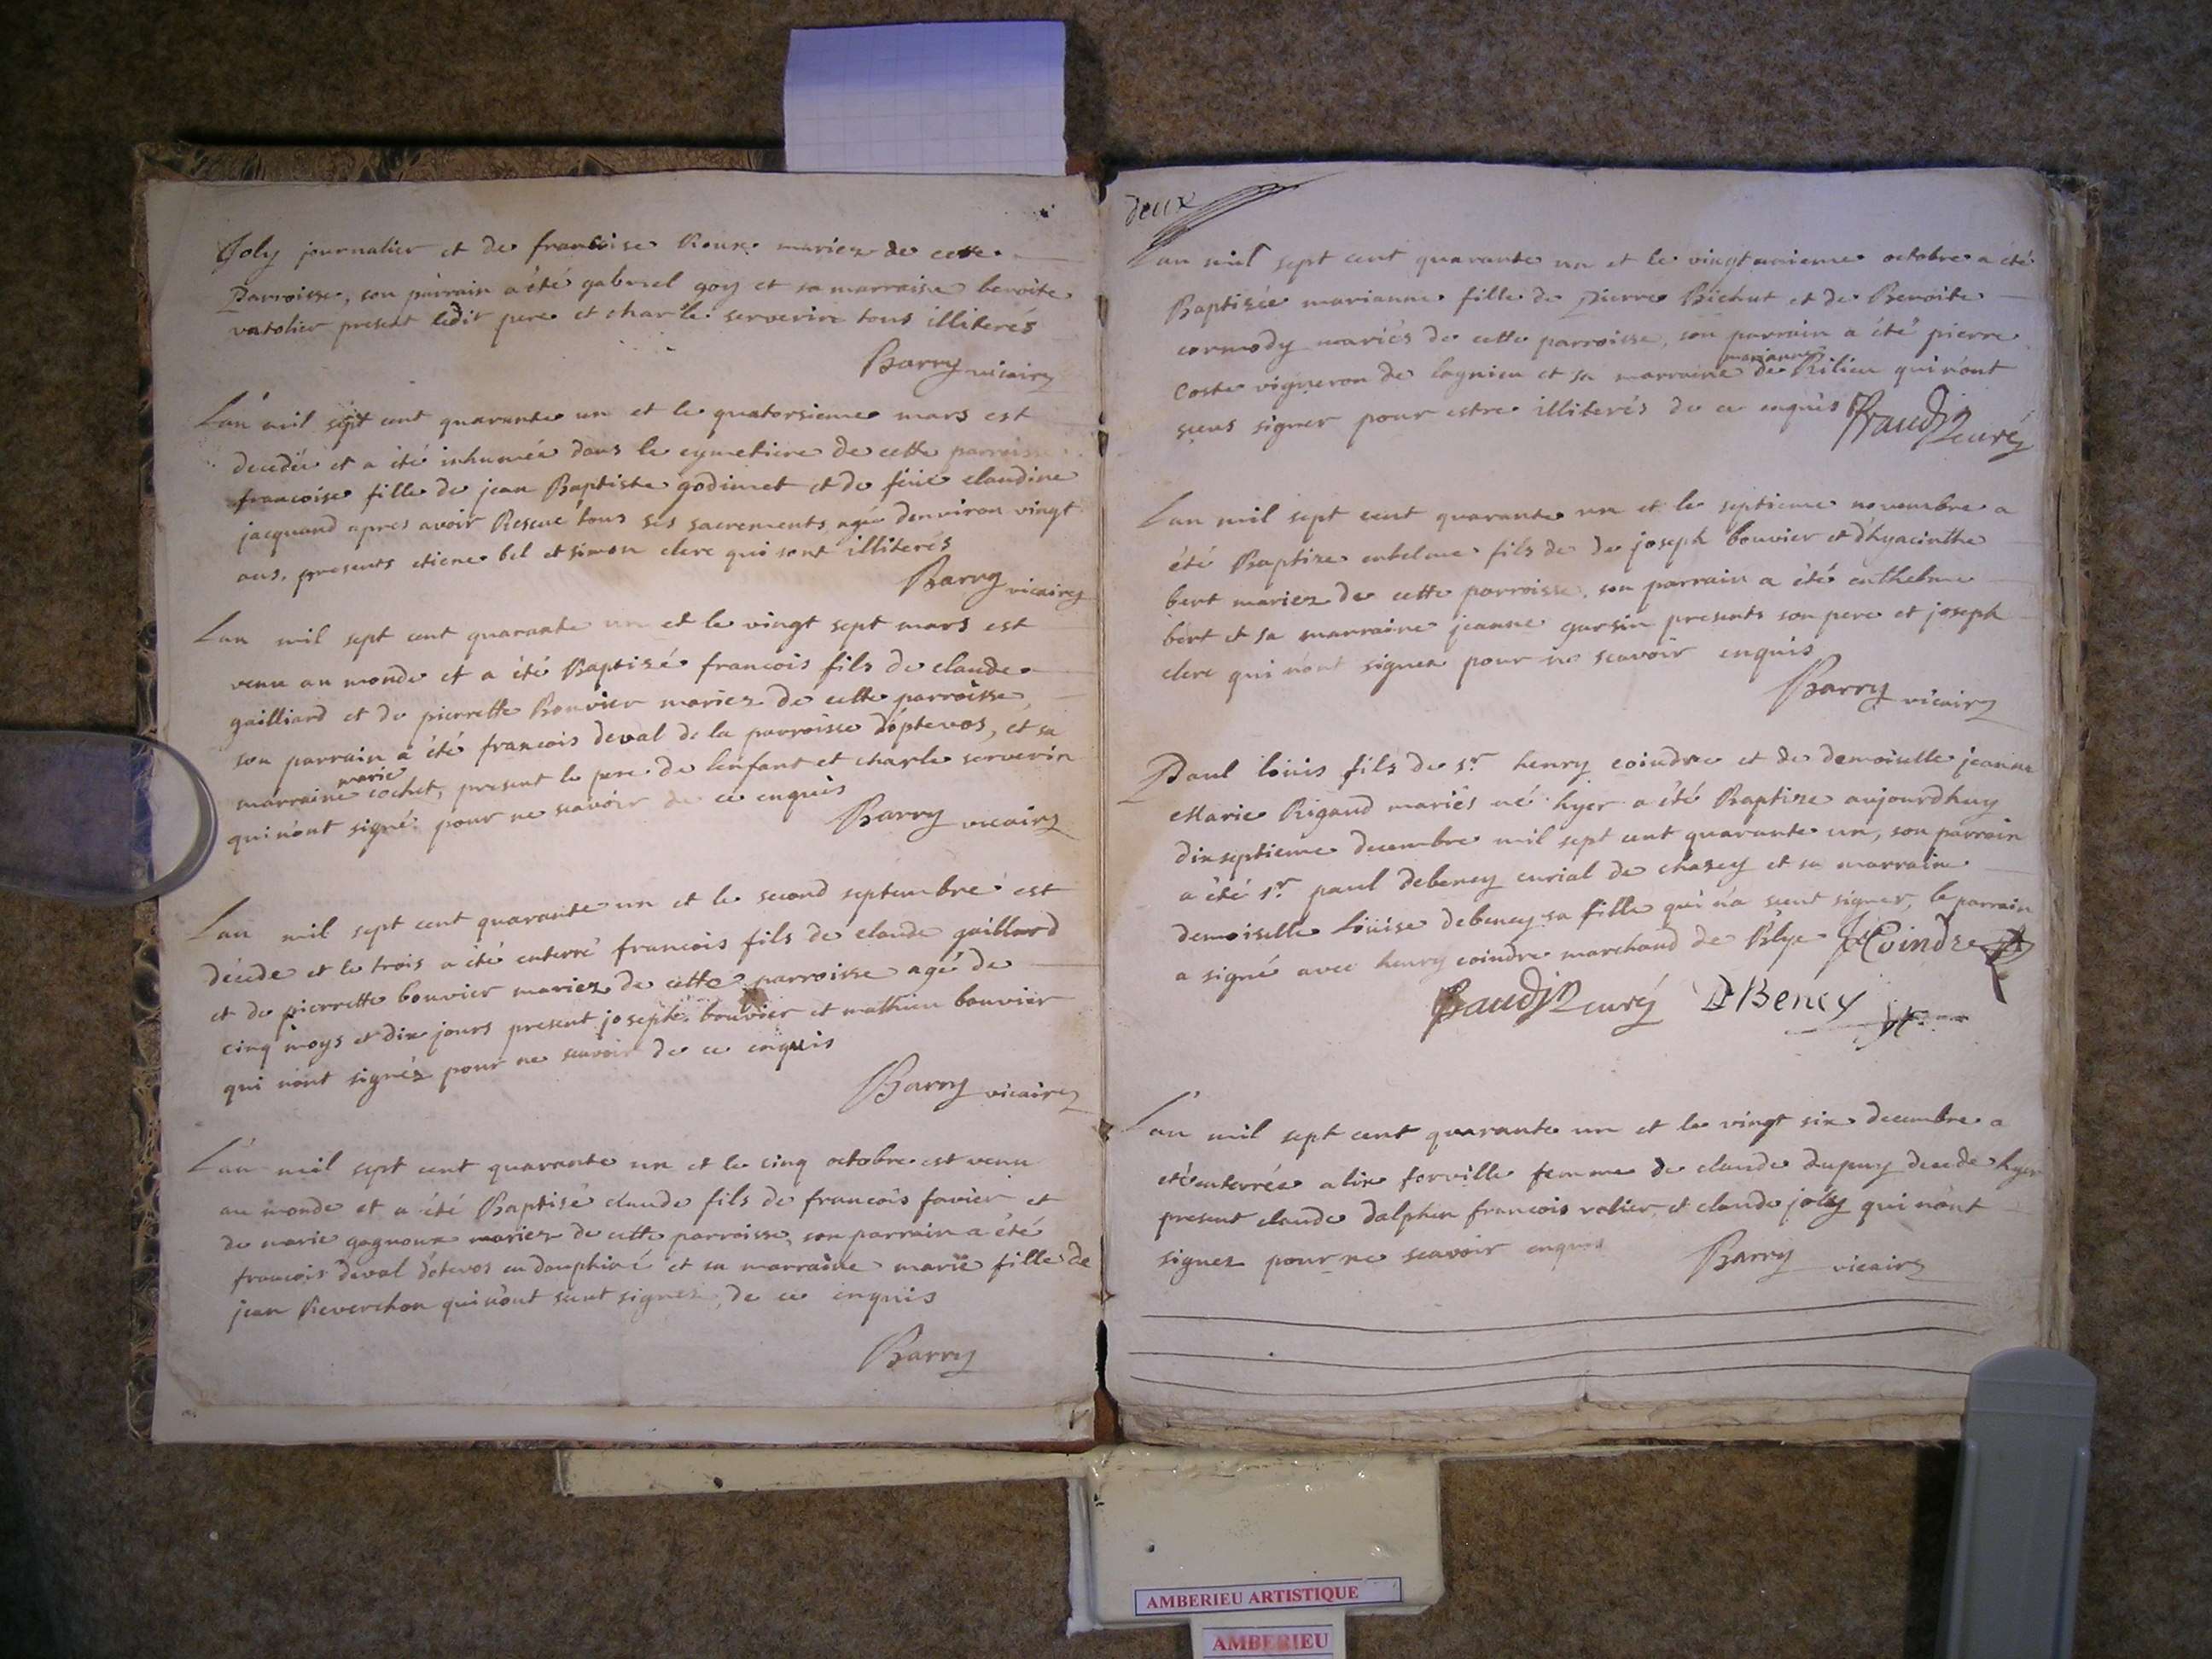 Joly journalier et de francoise Roux mariez de cette
Parroisse, son parrain a été gabriel goy et sa marraine benoite
vatolier present ledit pere et charle serverin tous illiterés
Barry vicaire
L'an mil sept cent quarante un et le quatorsieme mars est
decedée et a été inhumée dans le cymetiere de cette parroisse
francoise fille de jean Baptiste godimet et de feüe claudine
jacquand apres avoir Resçue tous ses sacrements, agée denviron vingt
ans. presents etiene bel et simon clerc qui sont illiterés
Barry vicaire
L'an mil sept cent quarante un et le vingt sept mars est
venu au monde et a été Baptisé francois fils de claude
gailliard et de pierrette Bouvier mariez de cette parroisse,
son parrain a été francois deval de la parroisse d'optevos, et sa
marraine marie cochet, present le pere de lenfant et charle serverin
qui n'ont signé pour ne scavoir de ce enquis
Barry vicaire
L'an mil sept cent quarante un et le second septembre est
décede et le trois a été enterré francois fils de claude gaillard
et de pierrette bouvier mariez de cette parroisse agé de
cinq moys et dix jours present joseph bouvier et mathieu bouvier
qui n'ont signéz pour ne scavoir de ce enquis
Barry vicaire
L'an mil sept cent quarante un et le cinq octobre est venu
au monde et a été Baptisé claude fils de francois favier et
de marie gagnoux mariez de cette parroisse, son parrain a été
francois deval d'otevos en dauphiné et sa marraine marie fille de
jean Reverchon qui n'ont sceut signer, de ce enquis
Barry
deux
L'an mil sept cent quarante un et le vingt unieme octobre a été
Baptisée marianne fille de Pierre Bichut et de Benoite
cormody mariés de cette parroisse, son parrain a été pierre
Coste vigneron de lagnieu et sa marraine marianne de Rilieu qui n'ont
sceus signer pour estre illiterés de ce enquis curé
L'an mil sept cent quarante un et le septieme novembre a
été Baptize entelme fils de de joseph bouvier et d'hyacinthe
bert mariez de cette parroisse, son parrain a été enthelme
bert et sa marraine jeanne garsin presents son pere et joseph
clerc qui n'ont signez pour ne scavoir enquis
Barry vicaire
Paul loüis fils de sr henry coindre et de demoiselle jeanne
Marie Rigaud mariés né hyer a été Baptize aujourdhuy
dixseptieme decembre mil sept cent quarante un, son parrain
a été sr paul debeney curial de chazey et sa marraine
demoiselle Loüise debeney sa fille qui n'a sceut signer, le parrain
a signé avec henry coindre marchand de Blye Coindre
curé DBeney
L'an mil sept cent quarante un et le vingt six decembre a
eté enterrée alix forville femme de claude dupuy decede hyer
present claude dalphin francois valier et claude jolly qui n'ont
signez pour ne scavoir enquis Barry vicaire
AMBERIEU ARTISTIQUE
AMBERIEU